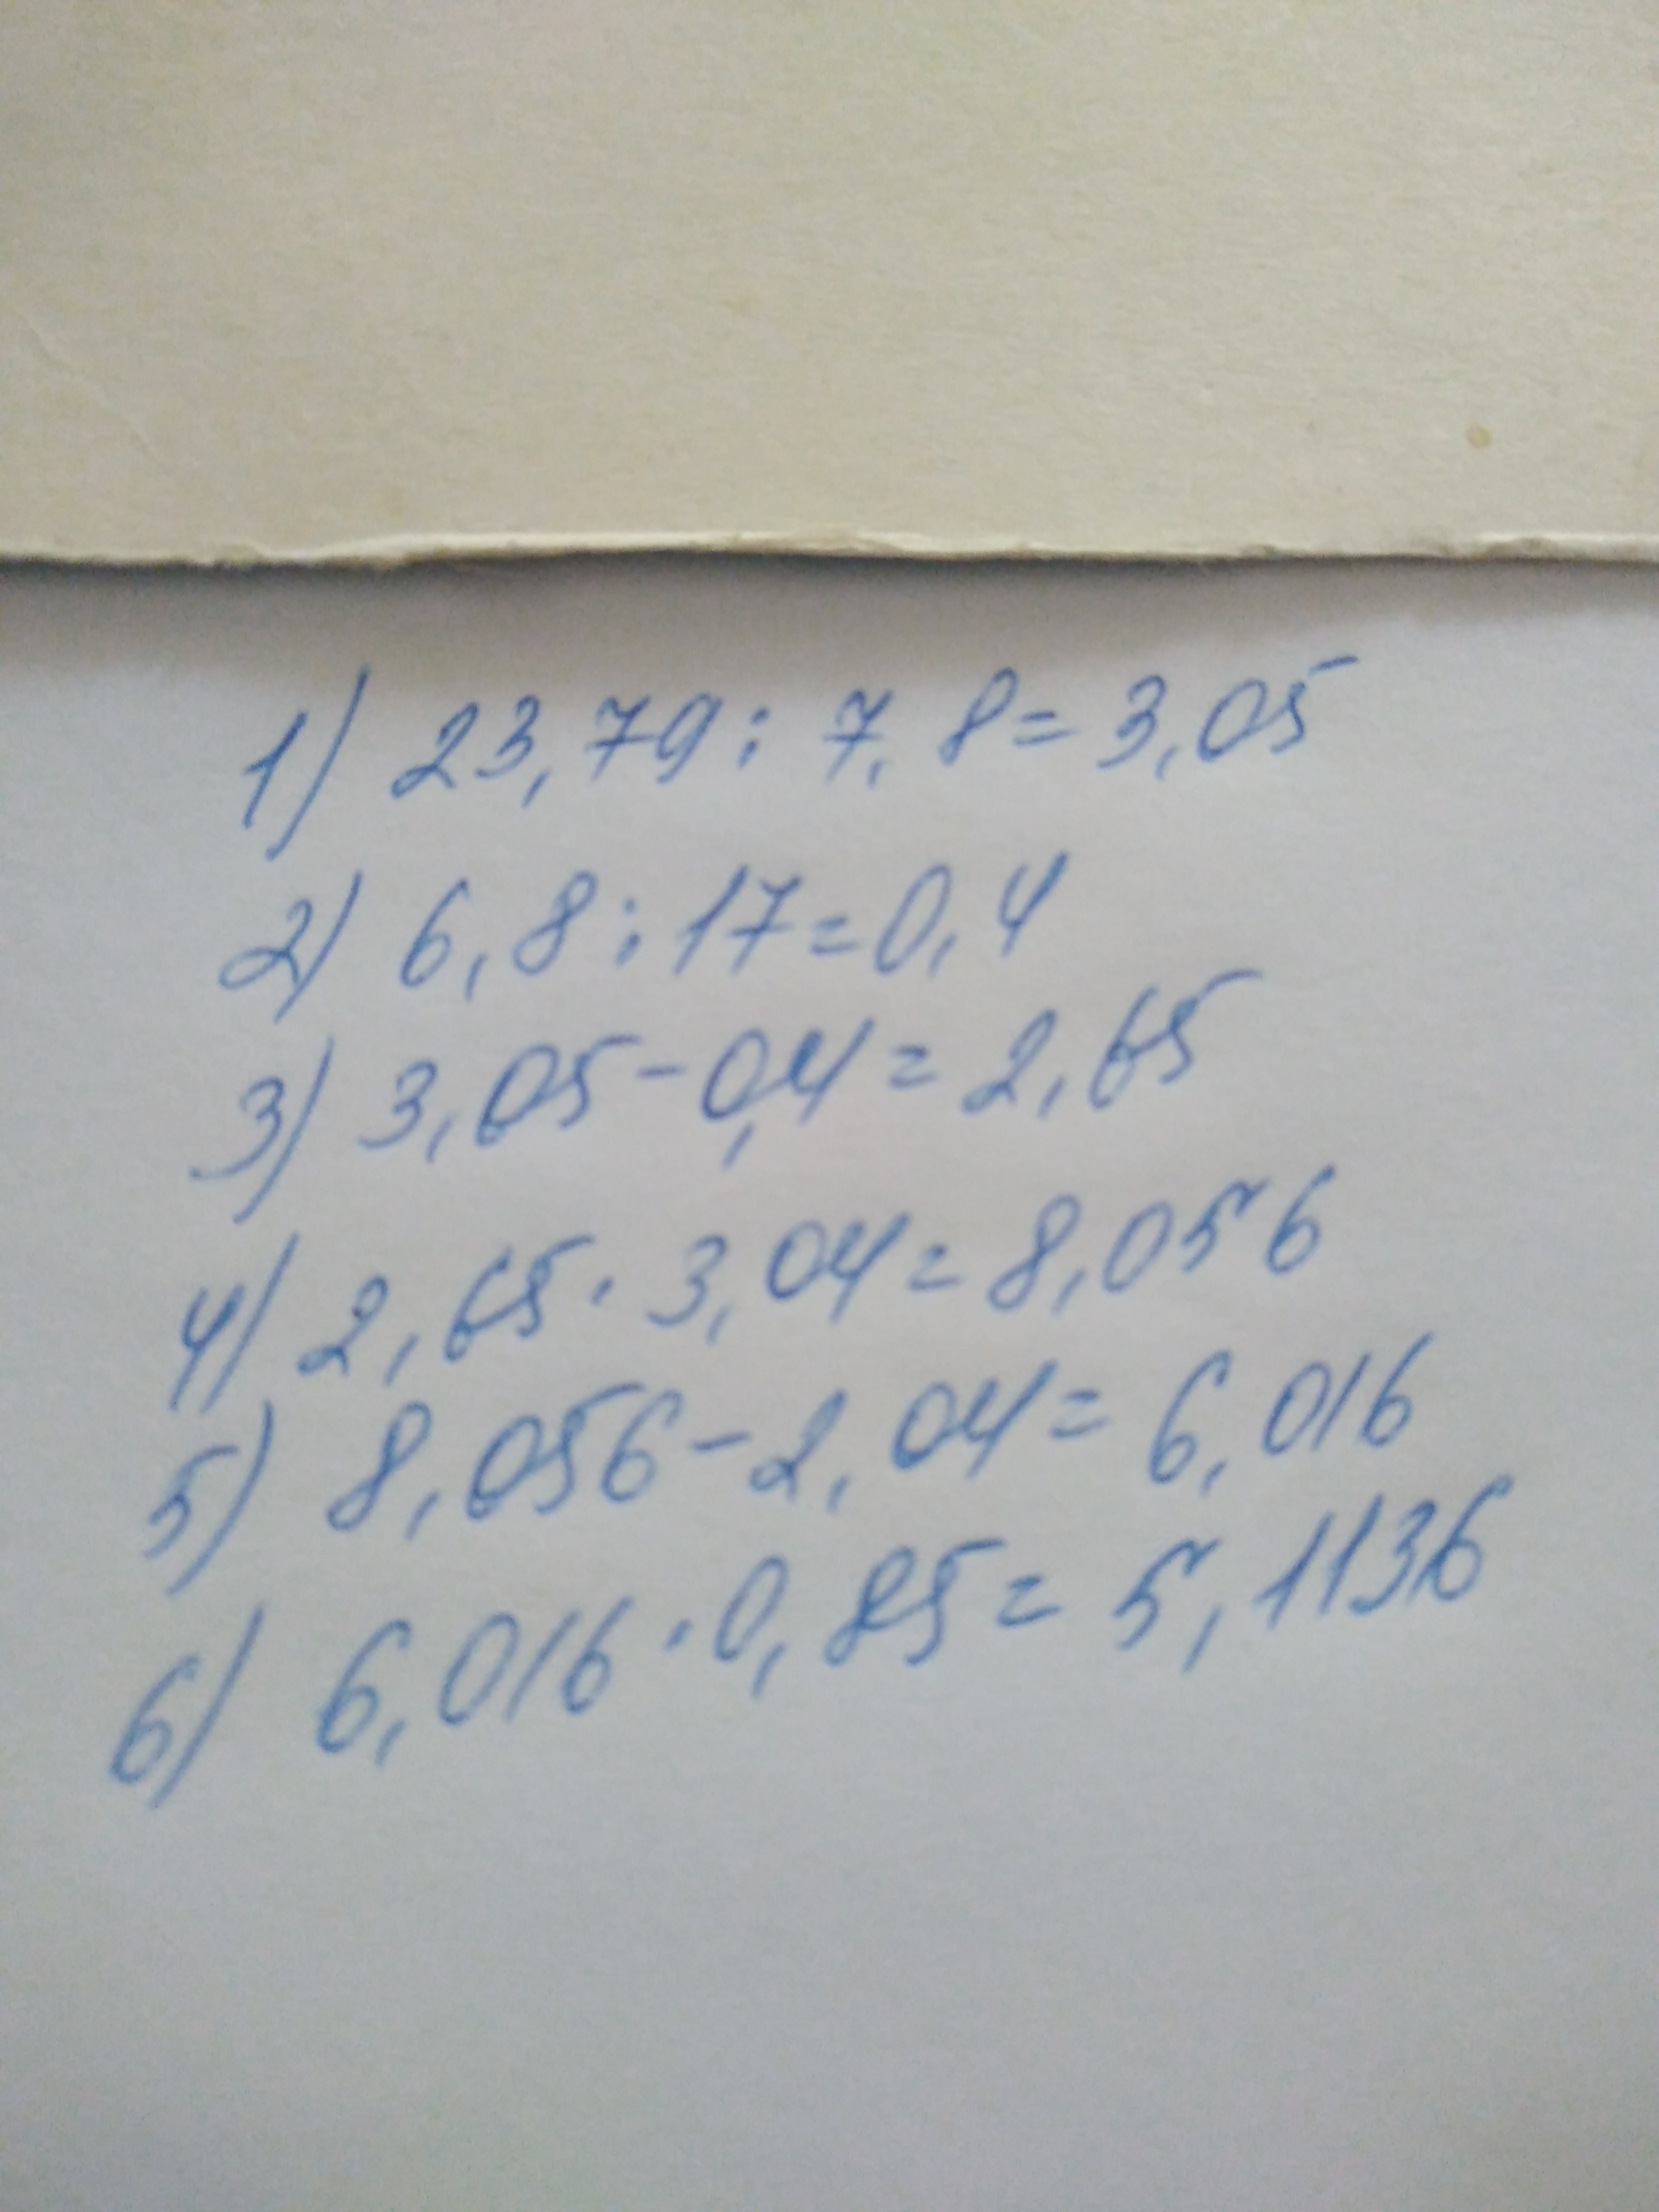 1) 23,79 : 7,8 = 3,05
2) 6,8 : 17 = 0,4
3) 3,05 - 0,4 = 2,65
4) 2,65 · 3,04 = 8,056
5) 8,056 - 2,04 = 6,016
6) 6,016 · 0,85 = 5,1136